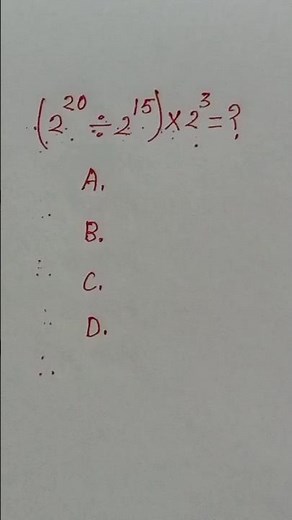 (2²⁰ ÷ 2¹⁵) × 2³ = ?
A.
B.
C.
D.